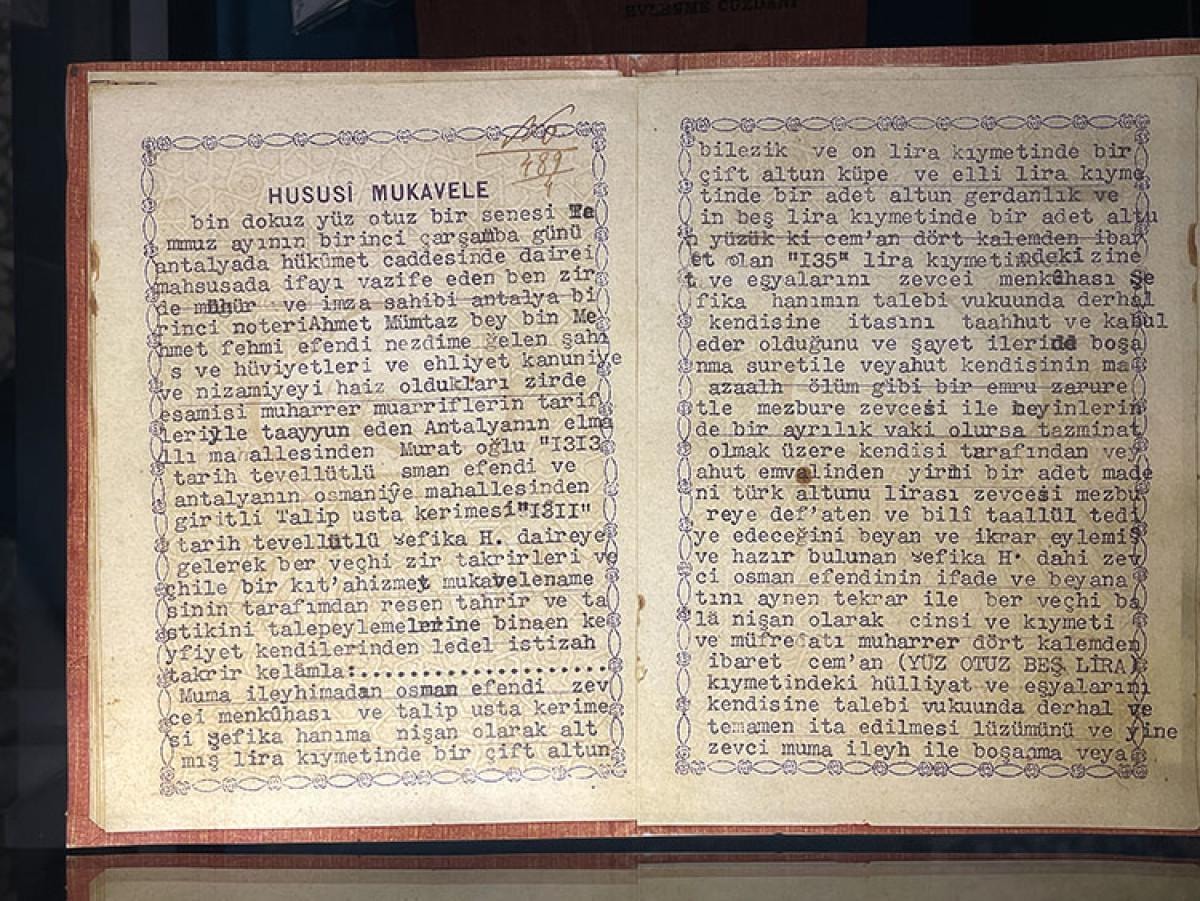 EVLENME CÜZDANI
489
4
HUSUSİ MUKAVELE
bin dokuz yüz otuz bir senesi Te
mmuz ayının birinci çarşamba günü
antalyada hükûmet caddesinde dairei
mahsusada ifayı vazife eden ben zir
de mühür ve imza sahibi antalya bi
rinci noteriAhmet Mümtaz bey bin Me
hmet fehmi efendi nezdime gelen şahı
s ve hüviyetleri ve ehliyet kanuniye
ve nizamiyeyi haiz oldukları zirde
esamisi muharrer muarriflerin tarif
leriyle taayyun eden Antalyanın elma
lı mahallesinden Murat oğlu "I3I3
tarih tevellütlü sman efendi ve
antalyanın osmaniye mahallesinden
giritli Talip usta kerimesi"I3II"
tarih tevellütlü şefika H. daireye
gelerek ber veçhi zir takrirleri ve
çhile bir kıt'ahizmet mukavelename
sinin tarafımdan resen tahrir ve ta
stikini talepeylemelerine binaen ke
yfiyet kendilerinden ledel istizah
takrir kelâmla:....................
Muma ileyhimadan osman efendi zev
cei menkûhası ve talip usta kerime
si şefika hanıma nişan olarak alt
mış lira kıymetinde bir çift altun
bilezik ve on lira kıymetinde bir
çift altun küpe ve elli lira kıyme
tinde bir adet altun gerdanlık ve
in beş lira kıymetinde bir adet altu
n yüzük ki cem'an dört kalemden ibar
et olan "I35" lira kıymetindeki zine
t ve eşyalarını zevcei menkûhası Şe
fika hanımın talebi vukuunda derhal
kendisine itasını taahhut ve kabul
eder olduğunu ve şayet ileride boşa
nma suretile veyahut kendisinin ma
azaalh ölüm gibi bir emru zarure
tle mezbure zevcesi ile beyinlerin
de bir ayrılık vaki olursa tazminat
olmak üzere kendisi tarafından vey
ahut emvalinden yirmi bir adet made
ni türk altunu lirası zevcesi mezbu
reye def'aten ve bilî taallül tedi
ye edeceğini beyan ve ikrar eylemiş
ve hazır bulunan şefika H. dahi zev
ci osman efendinin ifade ve beyana
tını aynen tekrar ile ber veçhi ba
lâ nişan olarak cinsi ve kıymeti
ve müfredatı muharrer dört kalemden
ibaret cem'an (YÜZ OTUZ BEŞ LİRA)
kıymetindeki hülliyat ve eşyalarını
kendisine talebi vukuunda derhal ve
temamen ita edilmesi lüzümünü ve yine
zevci muma ileyh ile boşanma veya